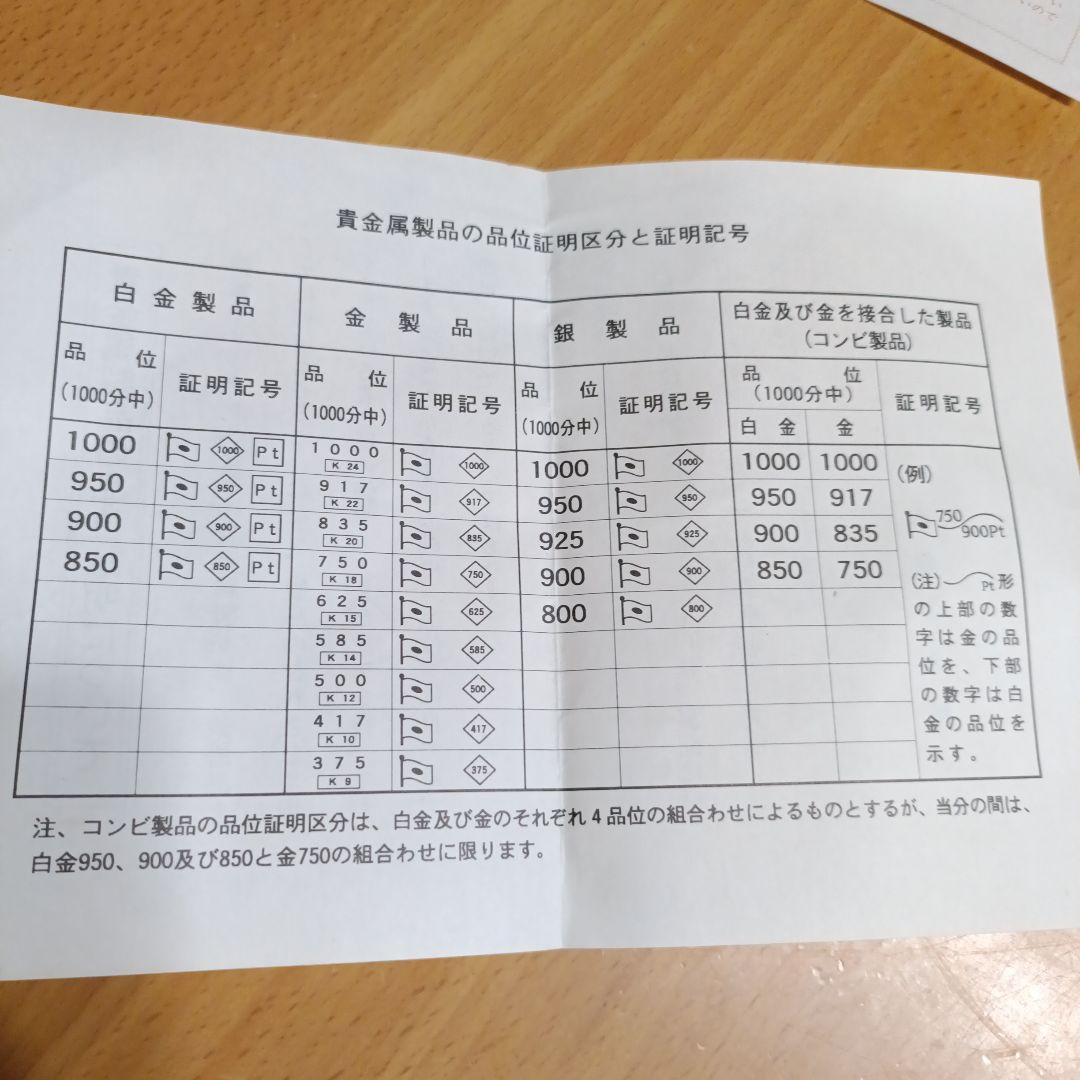 い
いので
貴金属製品の品位証明区分と証明記号
白金製品 金製品 銀製品 白金及び金を接合した製品
(コンビ製品)
品位 証明記号 品位 証明記号 品位 証明記号 品位 証明記号
(1000分中) (1000分中) (1000分中) (1000分中)
白金 金
1000 1000 Pt 1000 1000 1000 1000 1000 1000 (例)
K 24
950 950 Pt 917 917 950 950 950 917
K 22
900 900 Pt 835 835 925 925 900 835 750
K 20 900Pt
850 850 Pt 750 750 900 900 850 750 (注) Pt形
K 18
625 625 800 800 の上部の数
K 15 字は金の品
585 585 位を、下部
K 14
500 500 の数字は白
K 12
417 417 金の品位を
K 10
375 375 示す。
K 9
注、コンビ製品の品位証明区分は、白金及び金のそれぞれ4品位の組合わせによるものとするが、当分の間は、
白金950、900及び850と金750の組合わせに限ります。